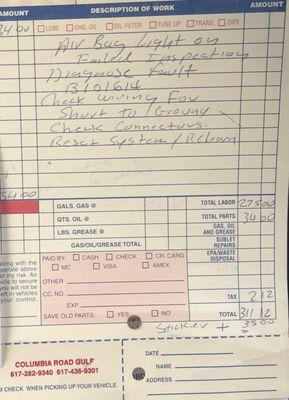 AMOUNT DESCRIPTION OF WORK AMOUNT
34 00 LUBE CHG. OIL OIL FILTER TUNE UP TRANS. DIFF
Air Bag Light on
Failed Inspection
Diagnose Fault
Check wiring For
Short to Ground
Check Connectors.
Reset System /
34 00
GALS. GAS @ TOTAL LABOR 275 00
QTS. OIL @ TOTAL PARTS 34 00
LBS. GREASE @ GAS, OIL AND GREASE
GAS/OIL/GREASE TOTAL SUBLET REPAIRS
EPA/WASTE DISPOSAL
along with the
operate above
at my risk. An
vehicle to secure
you will not be
left in vehicles
your control.
PAID BY: CASH CHECK CR. CARD
MC VISA AMEX
OTHER
CC. NO.
EXP.
SAVE OLD PARTS: YES NO
TAX 2 12
TOTAL 311 12
Sticker + 35 00
COLUMBIA ROAD GULF
617-282-9340 617-436-9301
CHECK WHEN PICKING UP YOUR VEHICLE.
DATE
NAME
ADDRESS